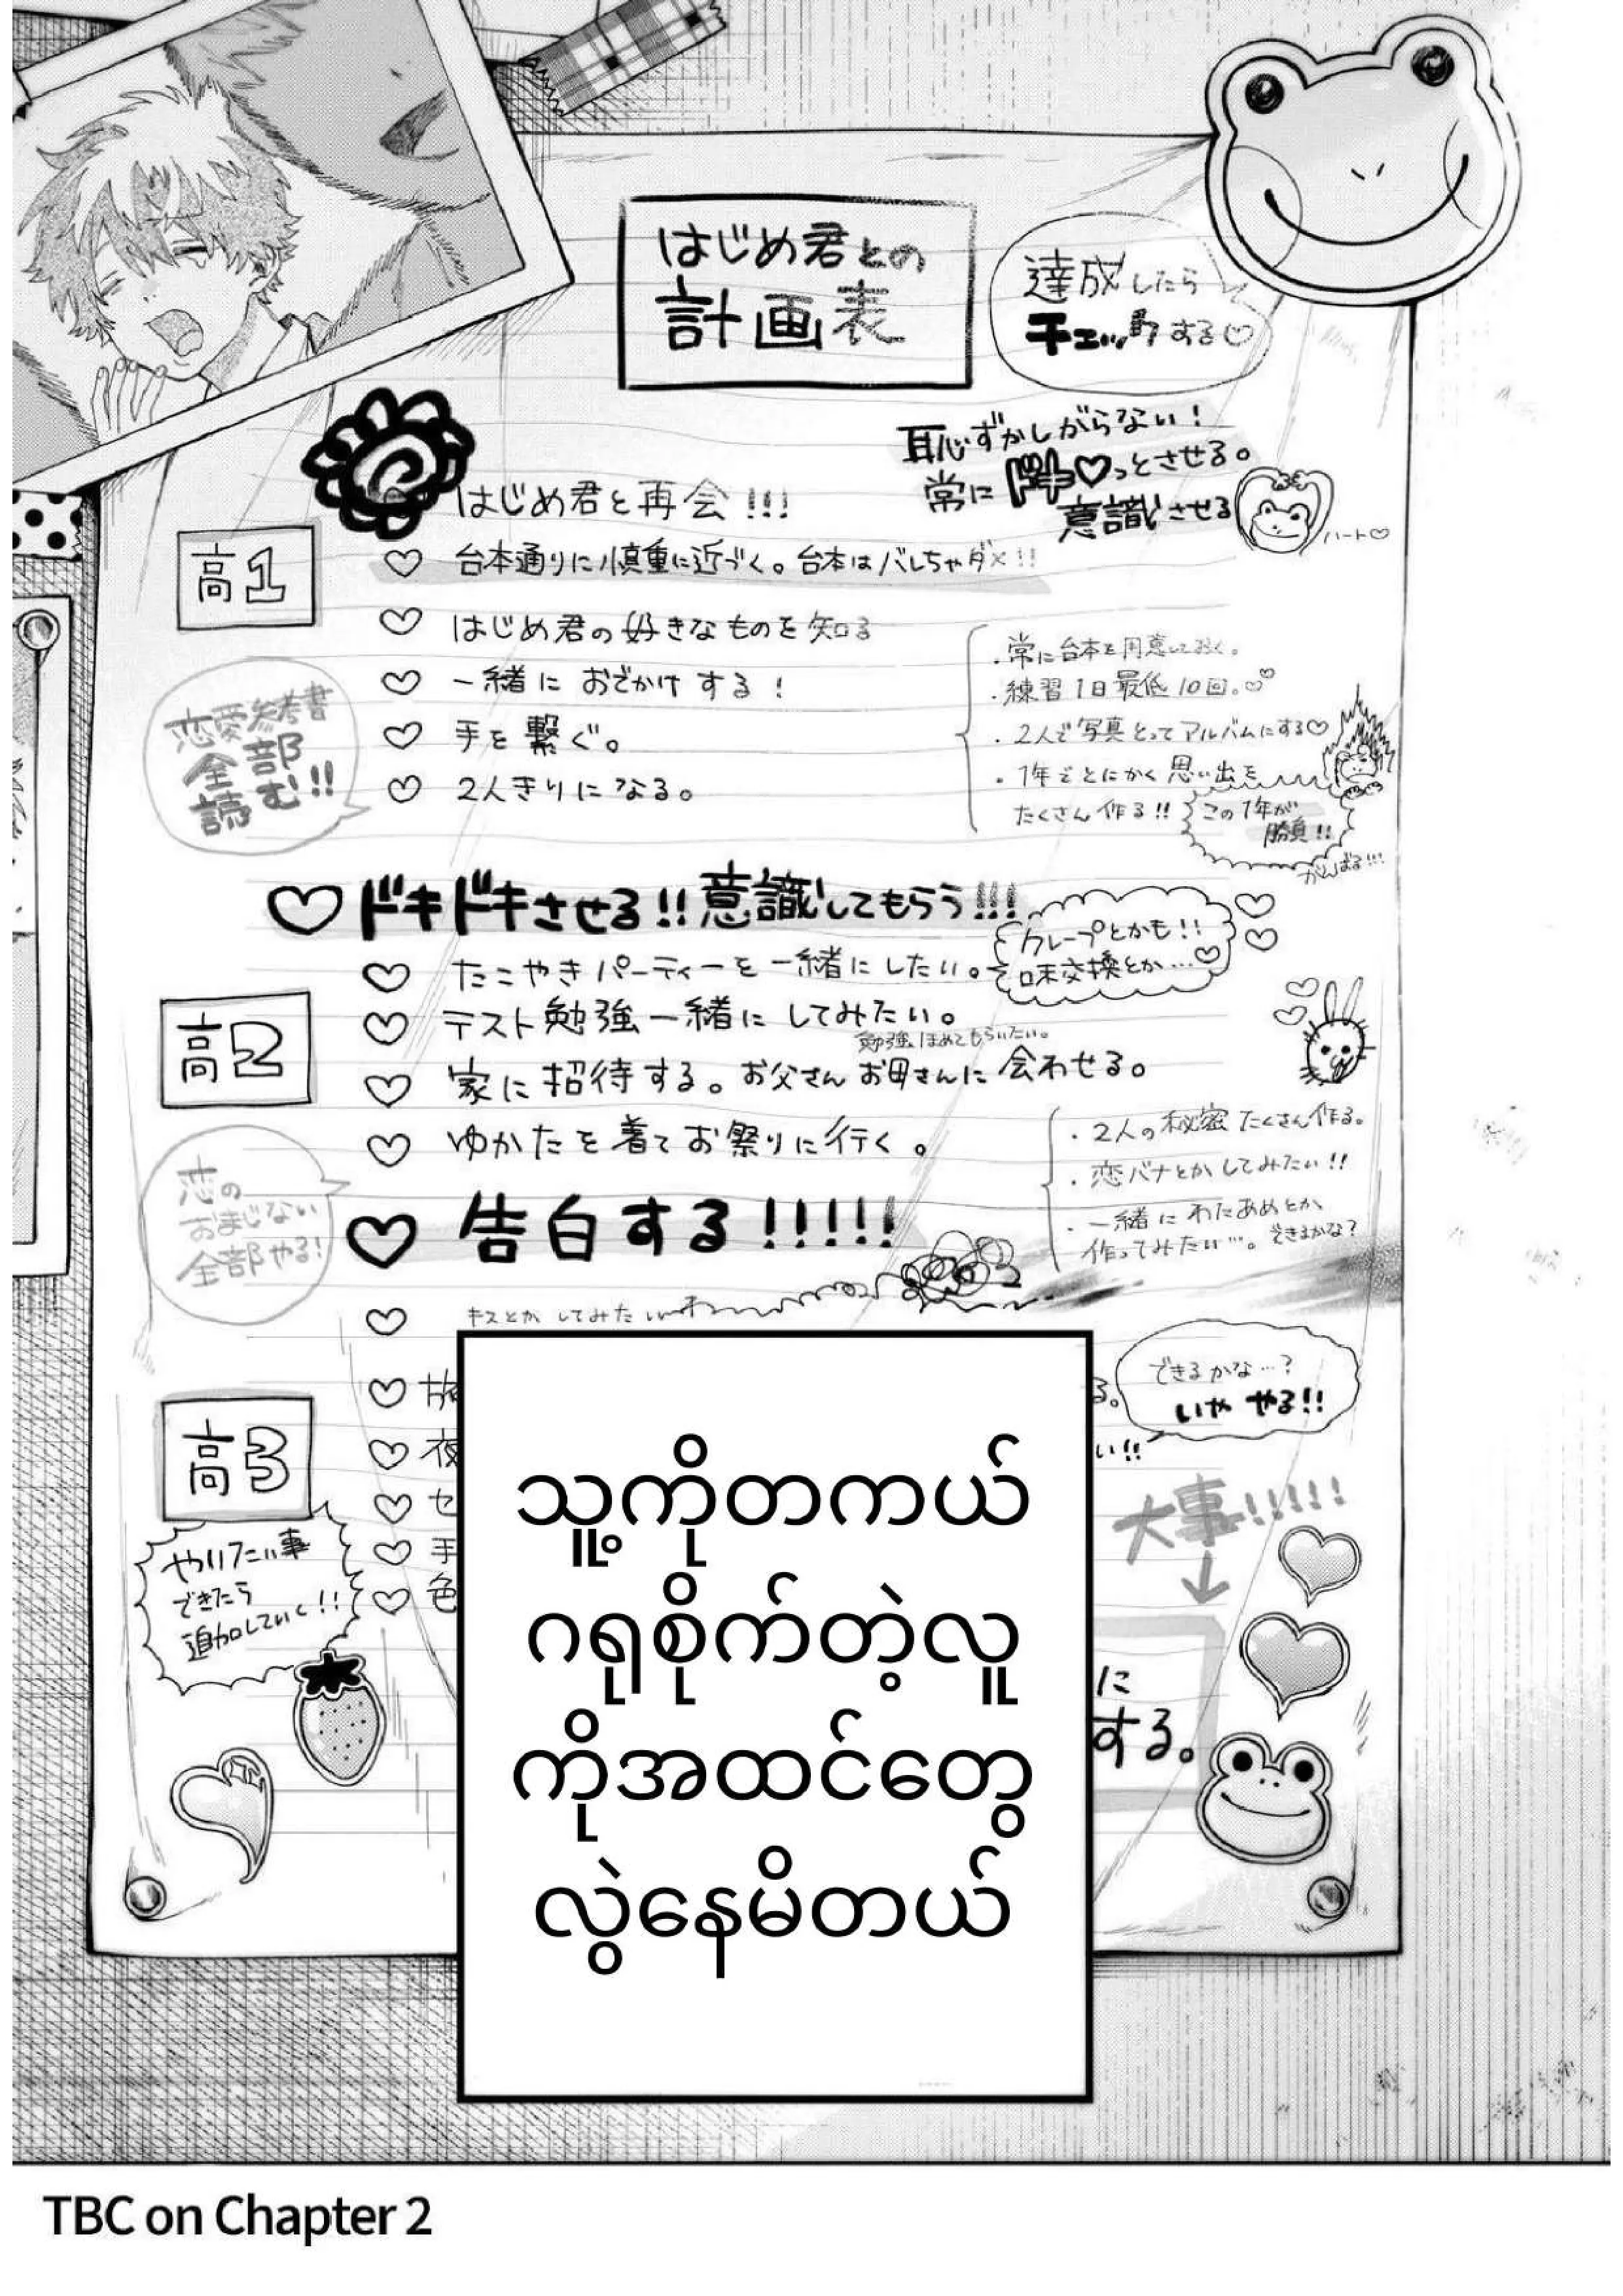 はじめ君との
計画表
達成したら
チェックする♡
恥ずかしがらない!
常にドキ♡っとさせる。
意識させる
ハート♡
高1
はじめ君と再会!!!
♡ 台本通りに慎重に近づく。台本はバレちゃダメ!!
♡ はじめ君の好きなものを知る
♡ 一緒におでかけする!
♡ 手を繋ぐ。
♡ 2人きりになる。
恋愛参考書
全部
読む!!
・常に台本を用意しておく。
・練習1日最低10回。♡♡
・2人で写真とってアルバムにする♡
・1年でとにかく思い出を
たくさん作る!!
この1年が
勝負!!
がんばる!!!
♡ドキドキさせる!!意識してもらう!!!
高2
♡ たこやきパーティーを一緒にしたい。
クレープとかも!!
味交換とか…♡
♡ テスト勉強一緒にしてみたい。
勉強ほめてもらいたい。
♡ 家に招待する。お父さんお母さんに会わせる。
♡ ゆかたを着てお祭りに行く。
♡ 告白する!!!!!
恋の
おまじない
全部やる!
・2人の秘密たくさん作る。
・恋バナとかしてみたい!!
・一緒にわたあめとか
作ってみたい…。できるかな?
♡ キスとかしてみたい
高3
♡
♡ 夜
♡ セ
♡ 手
♡ 色
る。
い!!
できるかな…?
いや やる!!
大事!!!!!
↓
に
する。
やりたい事
できたら
追加していく!!
သူ့ကိုတကယ်
ဂရုစိုက်တဲ့လူ
ကိုအထင်တွေ
လွဲနေမိတယ်
TBC on Chapter 2